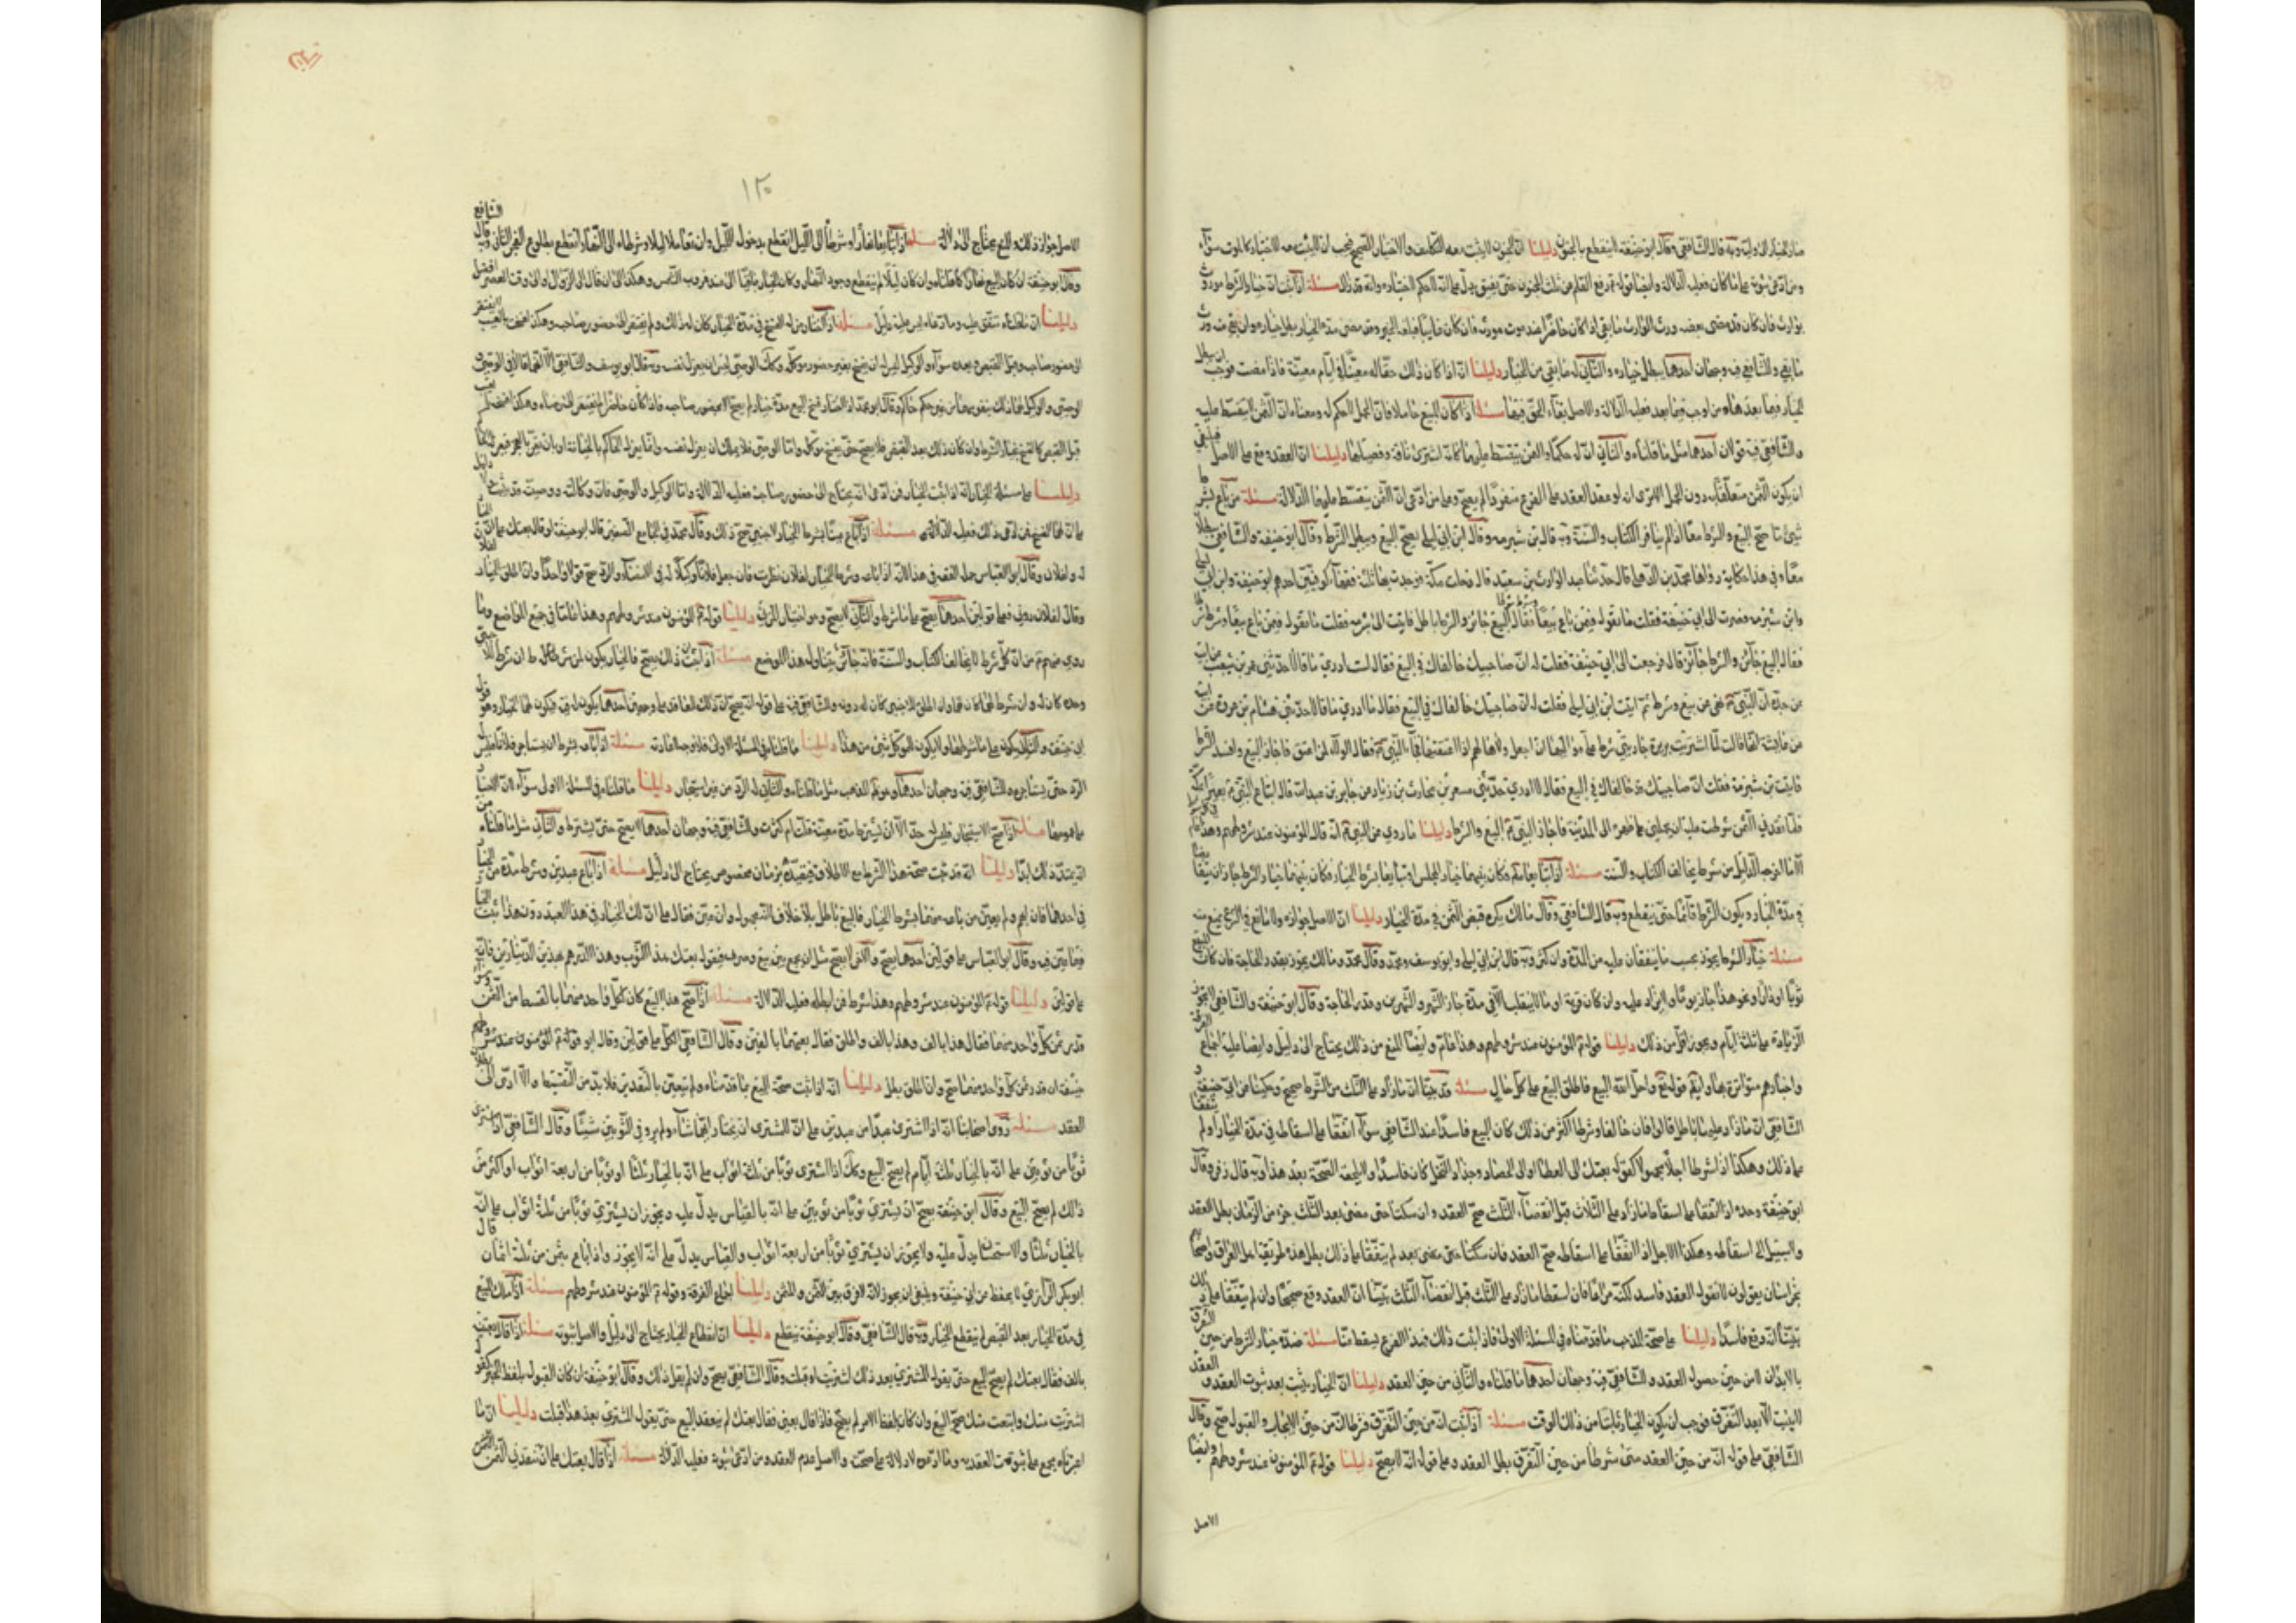 صار الخيار الى وليه وبه قال الشافعي وقال ابو حنيفة لا ينقطع بالجنون دليلنا ان المجنون لا يثبت معه التكليف والاختيار الصحيح فيجب ان لا يثبت معه الاختيار كالموت سواء
ومن ادعى ثبوته على ما كان فعليه الدلالة وايضا قوله ع رفع القلم عن ثلث المجنون حتى يفيق يدل على انه لا حكم لاختياره وانه قد زال مسئلة اذا ثبت ان خيار الشرط موروث
لوارث فان كان قد مضى بعضه ورث الوارث ما بقي اذا كان حاضرا عند موت مورثه فان كان غايبا فبلغه الخبر وقد مضى مدة الخيار بطل خياره وان بقي منه ورث
ما بقي وللشافعي فيه وجهان احدهما يبطل خياره والثاني له ما بقي من الخيار دليلنا انه اذا كان ذلك حقا له معينا في ايام معينة فاذا مضت فوجب ان يبطل
الخيار فيما بعدها ومن اوجب فيما بعد فعليه الدلالة والاصل بقاء الحق فيها مسئلة اذا كان المبيع حاملا فان الحمل لا حكم له ومعناه ان الثمن لا يتقسط عليه
وللشافعي فيه قولان احدهما مثل ما قلناه والثاني ان له حكما والثمن يتقسط عليهما كانه اشترى ناقة وفصيلها دليلنا ان العقد وقع على الاصل فينبغي
ان يكون الثمن متعلقا به دون الحمل الا ترى انه لو عقد العقد على الفرع منفردا لم يصح وعلى من ادعى ان الثمن يتقسط عليهما الدلالة مسئلة من باع بشرط
شيئا ما صح البيع والشرط معا اذا لم يناف الكتاب والسنة وبه قال بن شبرمه وقال ابن ابي ليلى يصح البيع ويبطل الشرط وقال ابو حنيفة والشافعي يبطلان
معا وفي هذا حكاية رواها محمد بن الذهلي قال حدثنا عبد الوارث بن سعيد قال دخلت مكة فوجدت بها ثلثة فقهاء كوفيين احدهم ابو حنيفة وابن ابي ليلى
وابن شبرمه فصرت الى ابي حنيفة فقلت ما تقول فيمن باع بيعا وشرط شرطا فقال البيع فاسد والشرط فاسد فاتيت ابن ابي ليلى فقلت ما تقول فيمن باع بيعا وشرط شرطا
فقال البيع جائز والشرط جائز قال فرجعت الى ابي حنيفة فقلت له ان صاحبيك خالفاك في البيع فقال لست ادري ما قالا حدثني عمرو بن شعيب عن ابيه
عن جده ان النبي ع نهى عن بيع وشرط ثم اتيت ابن ابي ليلى فقلت له ان صاحبيك خالفاك في البيع فقال ما ادري ما قالا حدثني هشام بن عروة عن ابيه
عن عايشة انها قالت لما اشتريت بريرة جاريتي شرط على مواليها ان اجعل ولاءها لهم اذا اعتقتها فجاء النبي ع فقال الولاء لمن اعتق فاجاز البيع وافسد الشرط
فاتيت بن شبرمة فقلت ان صاحبيك قد خالفاك في البيع فقال لا ادري حدثني مسعر بن محارب بن زياد عن جابر بن عبد الله قال ابتاع النبي ع بعيرا بمكة
فلما نقدني الثمن شرطت عليه ان يحملني على ظهره الى المدينة فاجاز النبي ع البيع والشرط دليلنا ما روي عن النبي ع انه قال المؤمنون عند شروطهم وهذا عام
الا ما اخرجه الدليل من شرط يخالف الكتاب والسنة مسئلة اذا تبايعا بثمن فكان بينهما خيار المجلس او تبايعا بشرط الخيار فكان بينهما خيار الشرط جاز ان يتقابضا
في مدة الخيار ويكون الشرط قائما حتى ينقطع وبه قال الشافعي وقال مالك يكره قبض الثمن في مدة الخيار دليلنا ان الاصل جوازه ولا مانع في الشرع يمنع منه
مسئلة خيار الشرط يجوز بحسب ما يتفقان عليه من المدة وان كثر وبه قال ابن ابي ليلى وابو يوسف ومحمد وقال محمد ومالك يجوز بقدر الحاجة فان كان المبيع
ثوبا او دارا ونحو هذا جاز يوما ولا يزاد عليه وان كان قرية او ما لا ينقلب الا في مدة جاز الشهر والشهرين وقدر الحاجة وقال ابو حنيفة والشافعي لا يجوز
الزيادة على ثلثة ايام ويجوز اقل من ذلك دليلنا قوله ع المؤمنون عند شروطهم وهذا عام وايضا المنع من ذلك يحتاج الى دليل وايضا عليه اجماع الفرقة
واخبارهم متواترة بها وايضا قوله تع واحل الله البيع فاطلق البيع على كل حال مسئلة قد بينا ان ما زاد على الثلث من الشرط صحيح وحكينا عن ابي حنيفة و
الشافعي ان ما زاد عليها باطل قالوا فان خالفا وشرطا اكثر من ذلك كان البيع فاسدا عند الشافعي سواء اتفقا على اسقاطه في مدة الخيار او لم يتفقا
على ذلك وهكذا اذا شرطا اجلا مجهولا كقوله بعتك الى العطا او الى الحصاد وجذاذ النخل كان فاسدا ولا يلحقه الصحة بعد هذا وبه قال زفر وقال
ابو حنيفة وحده اذا اتفقا على اسقاط ما زاد على الثلاث قبل انقضاء الثلث صح العقد وان سكتا حتى مضى بعد الثلث جزء من الزمان بطل العقد
ولا سبيل الى اسقاطه وهكذا الاجل اذا اتفقا على اسقاطه صح العقد فان سكتا حتى مضى بعد لم يتفقا على ذلك بطل هذه طريقة اهل العراق واصحابه
بخراسان يقولون لا نقول العقد فاسد لكنه مراعا فان اسقطا ما زاد على الثلث قبل انقضاء الثلث تبينا ان العقد وقع صحيحا وان لم يتفقا على ذلك
تبينا انه وقع فاسدا دليلنا على صحة المذهب ما قدمناه في المسئلة الاولة فاذا ثبت ذلك فهذا الفرع يسقط عنا مسئلة مدة خيار الشرط من حين التفرق
بالابدان لا من حين حصول العقد وللشافعي فيه وجهان احدهما ما قلناه والثاني من حين العقد دليلنا ان الخيار يثبت بعد ثبوت العقد والعقد
لا يثبت الا بعد التفرق فوجب ان يكون الخيار ثابتا من ذلك الوقت مسئلة اذا ثبت انه من حين التفرق فشرطا انه من حين الايجاب والقبول صح وقال
الشافعي على قوله انه من حين العقد متى شرطا من حين التفرق بطل العقد وعلى قوله انه لا يصح دليلنا قوله ع المؤمنون عند شروطهم وايضا
الاصل
١٢٠
الاصل جواز ذلك والمنع يحتاج الى دلالة مسئلة اذا تبايعا نهارا وشرطا الى الليل انقطع بدخول الليل وان تعاقدا ليلا وشرطاه الى النهار انقطع بطلوع الفجر الثاني وبه قال الشافعي
وقال ابو حنيفة ان كان البيع نهارا كما قلناه وان كان ليلا لم ينقطع بوجود النهار وكان الخيار باقيا الى عند غروب الشمس وهكذا ان قال الى الزوال او الى وقت العصر اتصل
دليلنا ان ما قلناه متفق عليه وما ادعاه ليس عليه دليل مسئلة اذا اختار من له الفسخ في مدة الخيار كان له ذلك ولم يفتقر الى حضور صاحبه وهكذا فسخه بالعيب لا يفتقر
الى حضور صاحبه وقبل القبض وبعده سواء والوكيل ليس له ان يفسخ بغير حضور موكله وكذلك الوصي ليس له ان يعزل نفسه وبه قال ابو يوسف والشافعي الا انهما قالا في الوصي
الوصي والوكيل لهما ذلك بنفوسهما من غير حكم حاكم وقال ابو محمد اذا اختار فسخ البيع مدة خياره لم يصح الا بحضور صاحبه فاذا كان حاضرا لم يفتقر الى رضاه وهكذا فسخه بالعيب
قبل القبض كالفسخ بخيار الشرط وان كان ذلك بعد القبض فلا يصح حتى يفسخ موكله واما الوصي فلا يملك ان يعزل نفسه وانما يعزله الحاكم بالخيانة او بان يقر بالعجز فيعزله الحاكم
دليلنا على مسئلة الخيار انه اذا ثبت الخيار فمن ادعى انه يحتاج الى حضور صاحبه فعليه الدلالة واما الوكيل والوصي فان وكالته ووصيته قد ثبت ولا دليل
على ان لهما الفسخ فمن ادعى ذلك فعليه الدلالة مسئلة اذا باع عينا بشرط الخيار لاجنبي صح ذلك وقال محمد في الجامع الصغير قال ابو حنيفة لو قال بعتك على ان الخيار
له ولفلان وقال ابو العباس جملة الفقه في هذا انه اذا باعه وشرط الخيار لفلان نظرت فان جعل فلانا وكيلا له في الامضاء والرد صح قولا واحدا وان اطلق الخيار لفلان
وقال لفلان دوني فعلى قولين احدهما يصح على ما شرط والثاني لا يصح وهو اختيار المزني دليلنا قوله ع المؤمنون عند شروطهم وهذا عام في جميع المواضع وما
روي عنهم ع من ان كل شرط لا يخالف الكتاب والسنة فانه جائز يتناول هذا الموضع مسئلة اذا ثبت ان ذلك يصح فالخيار يكون لمن شرط ان شرط للاجنبي
وحده كان له وان شرط لهما كان لهما وان اطلق للاجنبي كان له دونه وللشافعي فيه على قوله انه يصح ان ذلك للعاقد على وجهين احدهما يكون له فيه فيكون لهما الخيار وهو قول
ابي حنيفة والثاني يكون على ما شرطا ولا يكون للموكل شيء من هذا دليلنا ما قلناه في المسئلة الاولى فلا وجه لاعادته مسئلة اذا باعه بشرط ان يستأمر فلانا فليس له
الرد حتى يستأمره وللشافعي فيه وجهان احدهما وهو ظاهر المذهب مثل ما قلناه والثاني له الرد من غير استيمار دليلنا ما قلناه في المسئلة الاولى سواء لان الخيار
على هو بينهما مسئلة اذا صح الاستيمار فليس له حد الا ان يشترط مدة معينة قلت ام كثرت وللشافعي فيه وجهان احدهما لا يصح حتى يشترط والثاني مثل ما قلناه
انه يمتد ذلك ابدا دليلنا انه قد ثبت صحة هذا الشرط مع الاطلاق فتقييده بزمان مخصوص يحتاج الى دليل مسئلة اذا باع عبدين وشرط مدة من الخيار
في احدهما فان ابهم ولم يعين من باعه منهما بشرط الخيار فالبيع باطل بلا خلاف لانه مجهول وان عين فقال على ان لك الخيار في هذا العبد دون هذا ثبت الخيار
فيما عين فيه وقال ابو العباس على قولين احدهما يصح والاخر لا يصح مثل ان يجمع بين بيع وصرف فيقول بعتك هذا الثوب وهذه الدراهم بهذين الدينارين فانه
على قولين دليلنا قوله ع المؤمنون عند شروطهم وهذا شرط فمن ابطله فعليه الدلالة مسئلة اذا صح هذا البيع كان لكل واحد منهما بالقسط من الثمن
قدر ثمن كل واحد منهما فقال هذا بالف وهذا بالف واطلق فقال بعتهما بالفين وقال الشافعي الكل على قولين وقال ابو
حنيفة ان قدر ثمن كل واحد منهما صح وان اطلق بطل دليلنا انه اذا ثبت صحة البيع بما قدمناه ولم يتعين بالنقدين فلا بد من التقسيط والا ادى الى بطلان
العقد مسئلة روى اصحابنا انه اذا اشترى عبدا من عبدين على ان للمشتري ان يختار ايهما شاء ولم يرو في الثوبين شيئا وقال الشافعي اذا اشترى
ثوبا من ثوبين على انه بالخيار ثلثة ايام لم يصح البيع وكذلك اذا اشترى ثوبا من ثلثة اثواب على انه بالخيار ثلثا او ثوبا من اربعة اثواب او اكثر من
ذلك لم يصح البيع وقال ابو حنيفة يصح ان يشتري ثوبا من ثوبين على انه بالقياس يدل عليه ويجوز ان يشتري ثوبا من ثلثة اثواب على انه
بالخيار ثلثا والاستحسان يدل عليه ولا يجوز ان يشتري ثوبا من اربعة اثواب والقياس يدل على انه لا يجوز واذا باع بثمن من ثلثة اثمان قال
ابو بكر الرازي لا يحفظ عن ابي حنيفة وينبغي ان يجوز لانه لا فرق بين الثمن والمثمن دليلنا اجماع الفرقة وقوله ع المؤمنون عند شروطهم مسئلة اذا هلك المبيع
في مدة الخيار بعد القبض لم ينقطع الخيار وبه قال الشافعي وقال ابو حنيفة ينقطع دليلنا ان انقطاع الخيار يحتاج الى دليل والاصل ثبوته مسئلة اذا قال بعنيه
بالف فقال بعتك لم يصح البيع حتى يقول المشتري بعد ذلك اشتريت او قبلت وقال الشافعي يصح وان لم يقل ذلك وقال ابو حنيفة ان كان القبول بلفظ الخبر كقوله
اشتريت منك وابتعت منك صح البيع وان كان بلفظ الامر لم يصح فاذا قال بعني فقال بعتك لم ينعقد البيع حتى يقول المشتري بعد هذا قبلت دليلنا ان ما
اعتبرناه مجمع على ثبوت العقد به وما ادعوه لا دلالة على صحته والاصل عدم العقد ومن ادعى ثبوته فعليه الدلالة مسئلة اذا قال بعتك على ان تنقدني الثمن